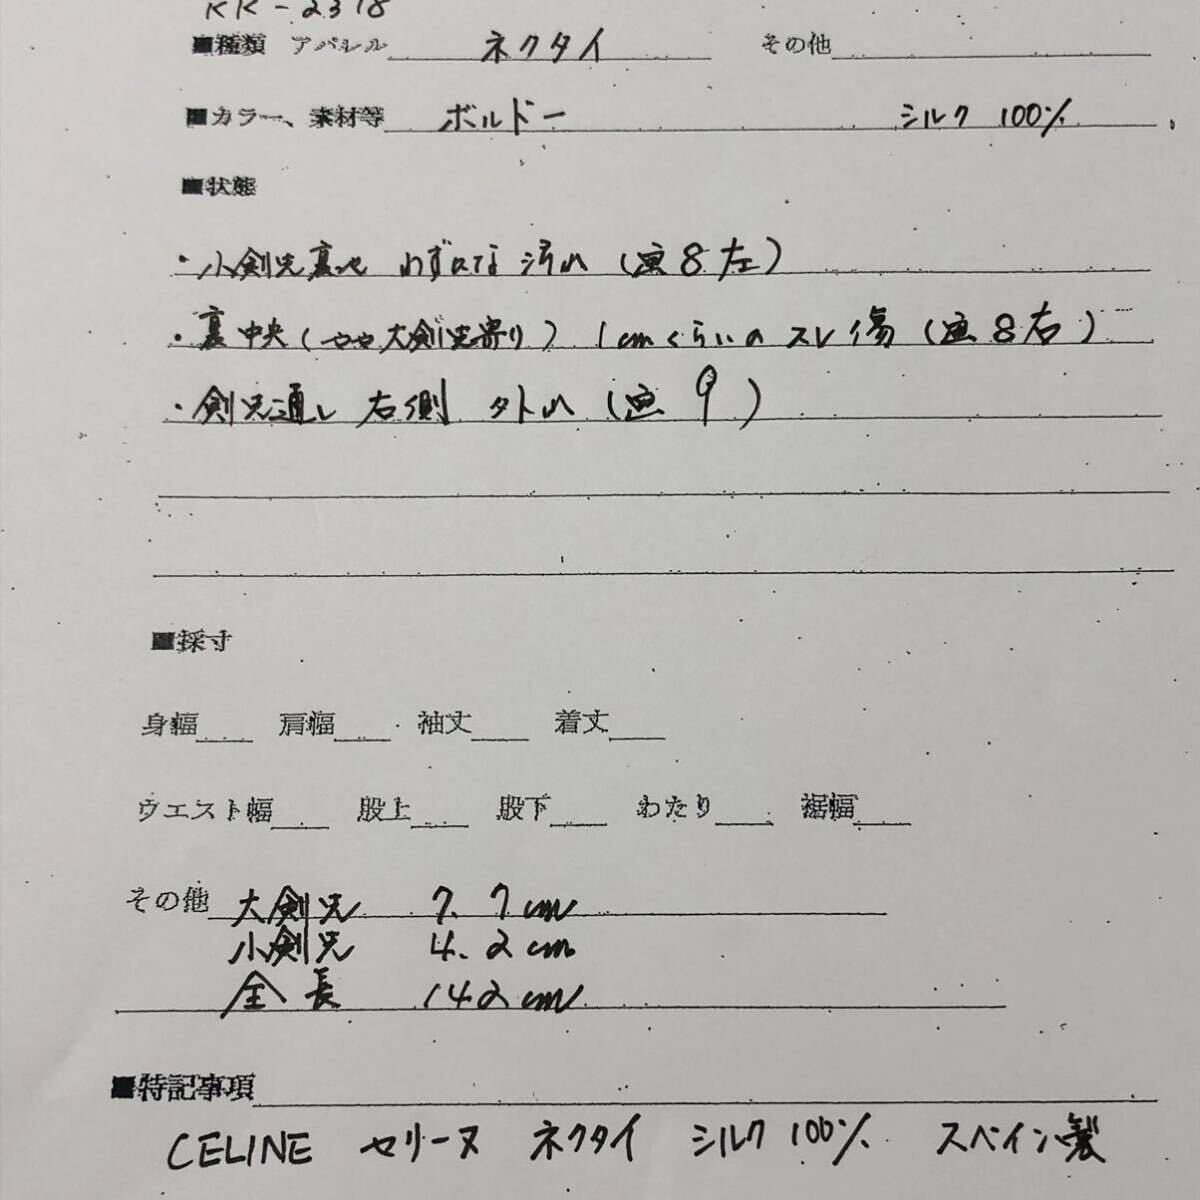 KK-2318
■種類 アパレル ネクタイ その他
■カラー、素材等 ボルドー シルク 100%
■状態
・小剣先裏地 わずかな汚れ (画8左)
・裏中央(やや大剣先寄り) 1cmくらいのスレ傷 (画8右)
・剣先通し 右側 外れ (画9)
■採寸
身幅 肩幅 袖丈 着丈
ウエスト幅 股上 股下 わたり 裾幅
その他 大剣先 7.7cm
小剣先 4.2cm
全長 142cm
■特記事項
CELINE セリーヌ ネクタイ シルク100% スペイン製